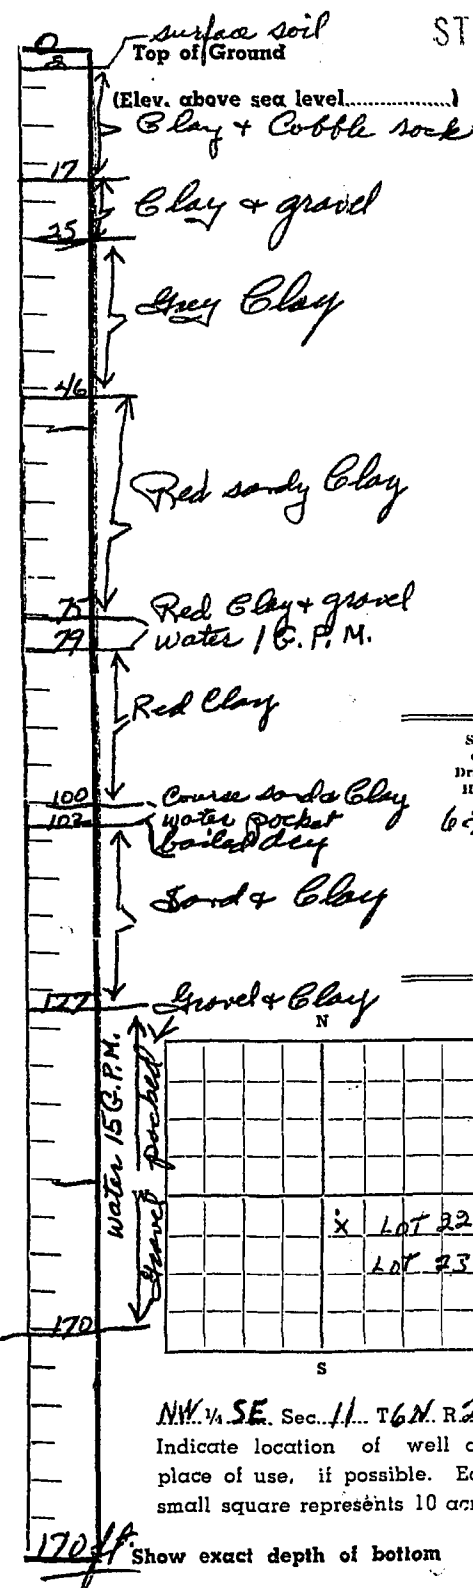 0 surface soil
ST
2 Top of Ground
(Elev. above sea level..................)
Clay & Cobble rock
17
Clay & gravel
25
Grey Clay
46
Red sandy Clay
75 Red Clay & gravel
79 water 1 G.P.M.
Red Clay
S
Dr
H
100 Course sand & Clay
102 water pocket
bailed dry
Sand & Clay
127 Gravel & Clay
N
water 15 G.P.M.
Gravel packed
W
X LOT 22
LOT 23
170
S
NW ¼ SE Sec. 11 T 6 N R 2
Indicate location of well
place of use, if possible. Ea
small square represents 10 acr
170 ft. Show exact depth of bottom